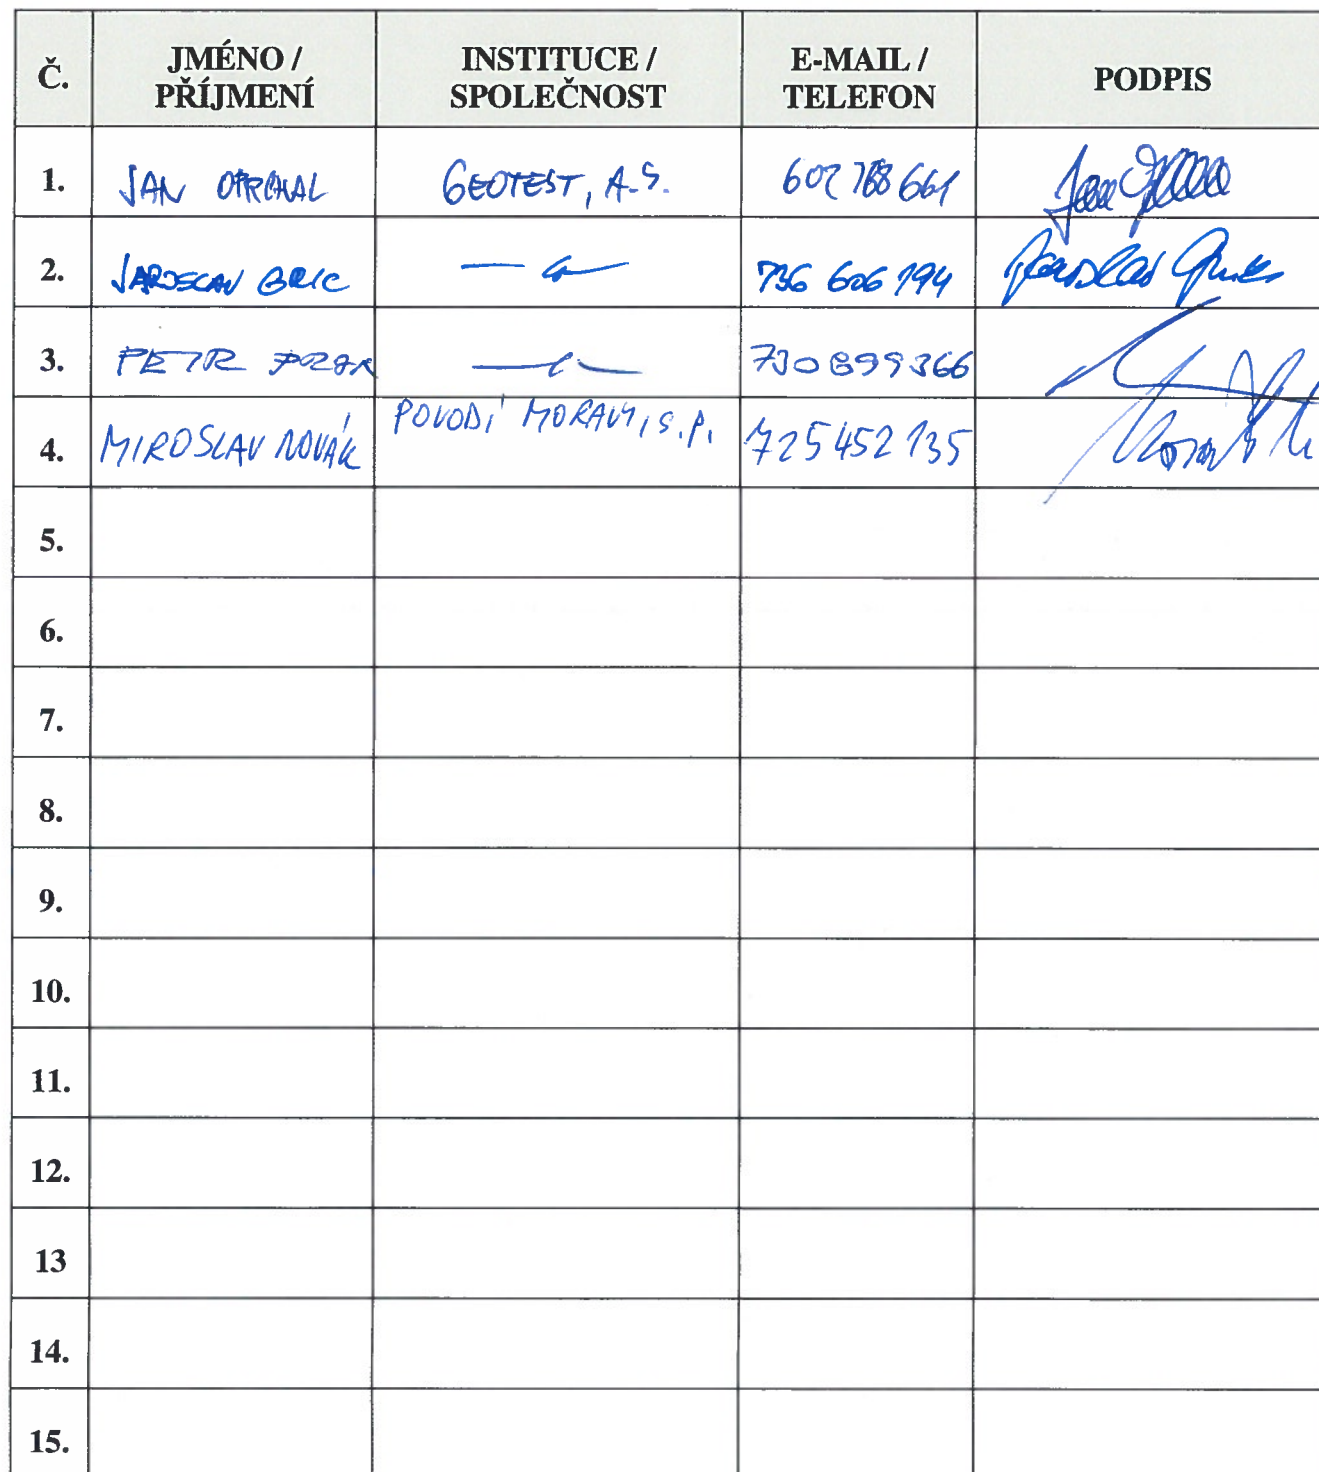 Č. JMÉNO / PŘÍJMENÍ INSTITUCE / SPOLEČNOST E-MAIL / TELEFON PODPIS
1. JAN GEOTEST, A.S. 602 788 661
2. JAROSLAV 736 606 194
3. PETR 730899366
4. MIROSLAV NOVÁK POVODÍ MORAVY, S.P. 725 452 135
5.
6.
7.
8.
9.
10.
11.
12.
13
14.
15.